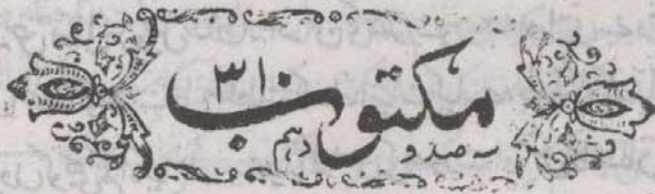 مکتوب ۳۱۰
سہ صد و دہم